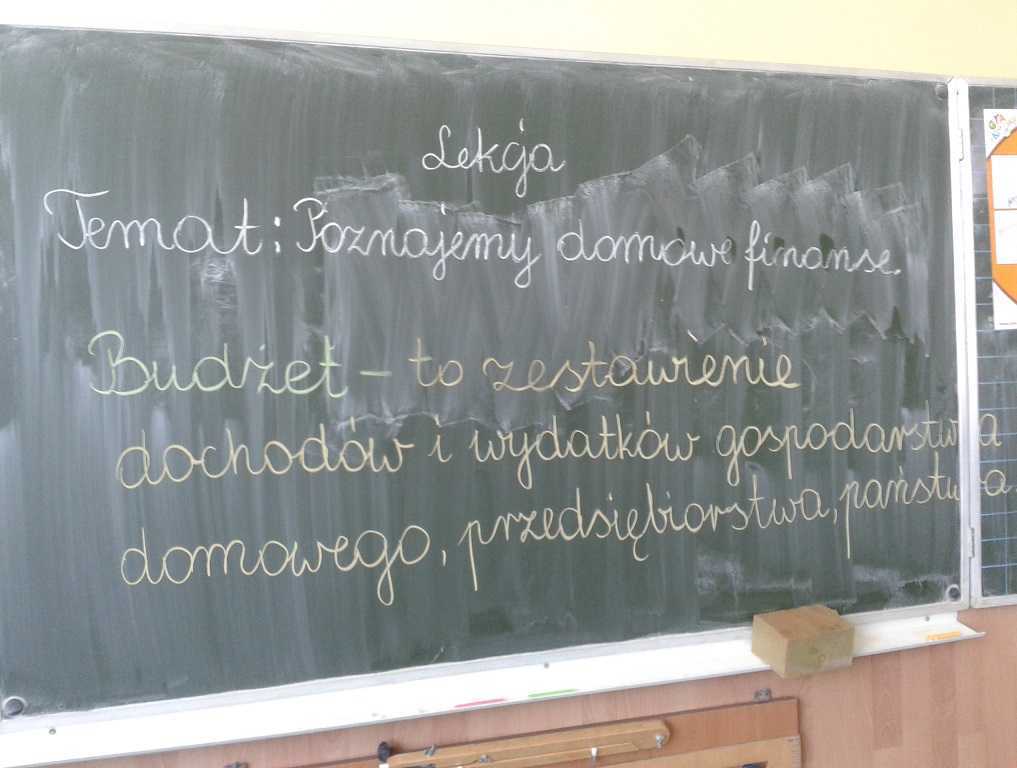 Lekcja
Temat: Poznajemy domowe finanse.
Budżet - to zestawienie
dochodów i wydatków gospodarstwa
domowego, przedsiębiorstwa, państwa.